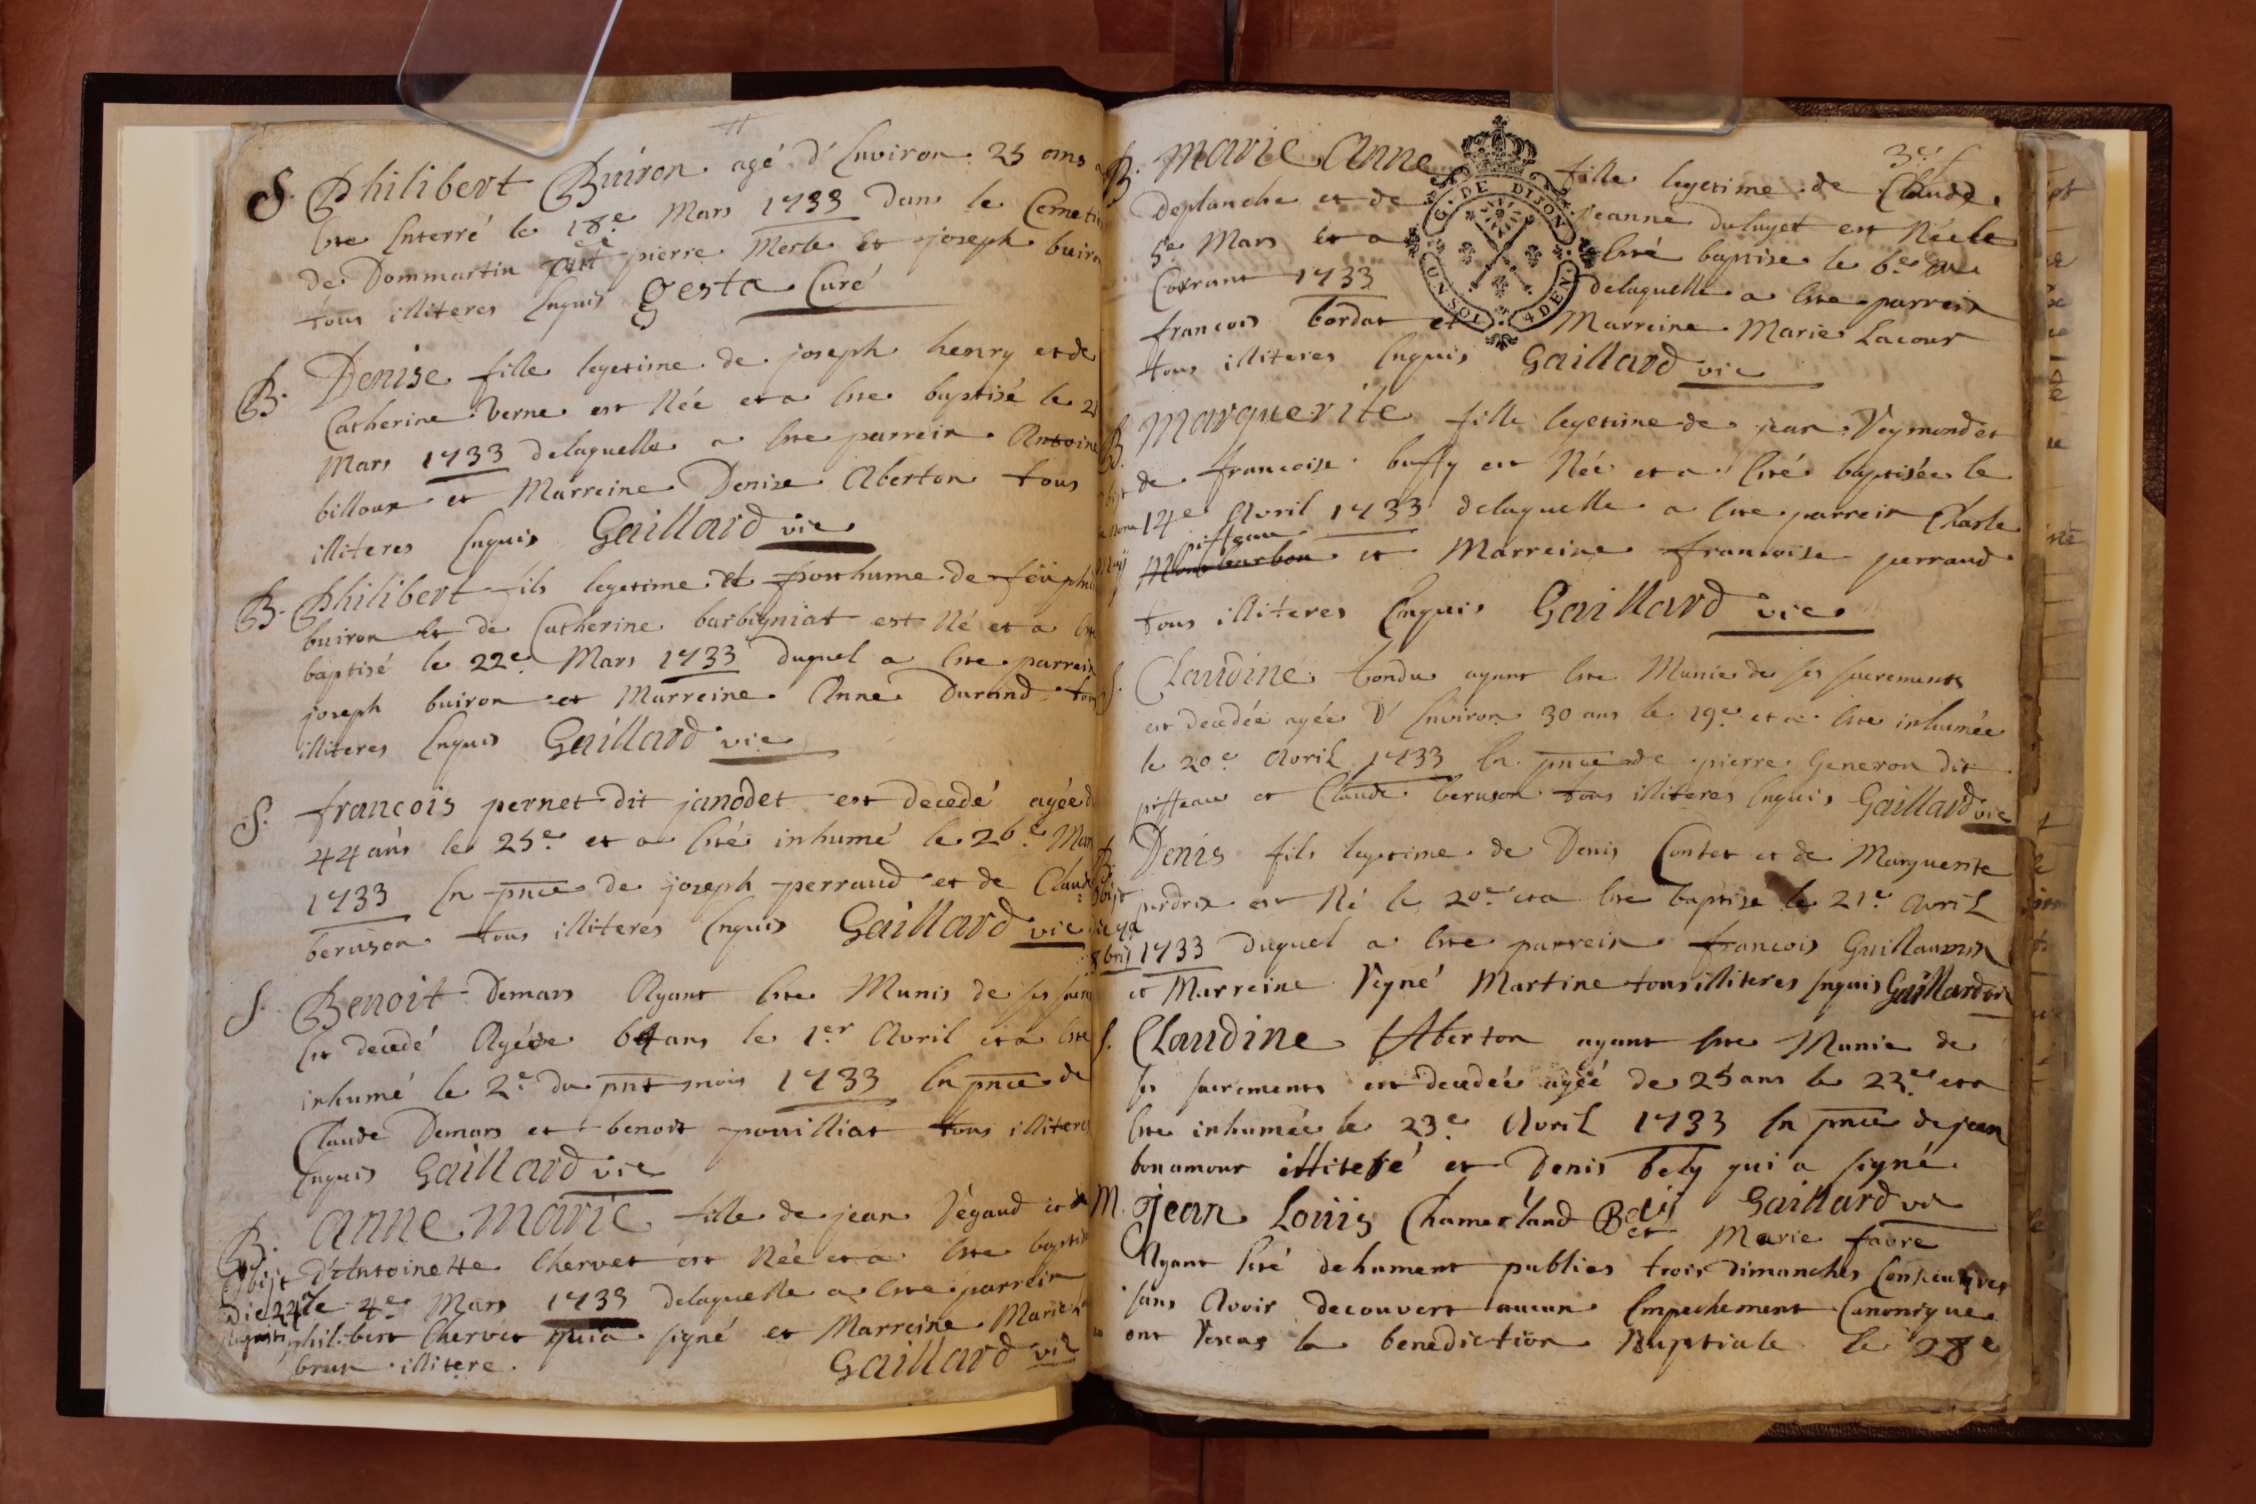 S. Philibert Buiron agé d'Environ 25 ans a
Ete Enterré le 18e Mars 1733 dans le Cemeti
de Dommartin pierre Merle et joseph buiro
tous illiteres Enquis Gesta Curé
B. Denise fille legetime de joseph henry et de
Catherine Verne est Née et a Ete baptisé le 21
Mars 1733 delaquelle a Ete parrein Antoine
billoux et Marreine Denise Aberton tous
illiteres Enquis Gaillard vic
B. Philibert fils legetime et posthume de feü phi
buiron et de Catherine barbigniat est Né et a Ete
baptisé le 22e Mars 1733 duquel a Ete parrein
joseph buiron et Marreine Anne Durand tous
illiteres Enquis Gaillard vic
S. françois pernet dit janodet est decedé agée d
44 ans le 25e et a Eté inhumé le 26e Mars
1733 En pnce de joseph perraud et de Claude
beruson tous illiteres Enquis Gaillard vic
S. Benoit Demars Ayant Ete Munis de ses sacre
Est decedé Agé de 64 ans le 1er Avril et a Ete
inhumé le 2e du pnt mois 1733 En pnce de
Claude Demars et benoit pouilliat tous illiteres
Enquis Gaillard vic
B. anne marie fille de jean Végaud et de
Obijt d'Antoinette Chervet est Née et a Ete baptis
Die 24 le 4e Mars 1733 delaquelle a Ete parrein
Augusti philibert Chervet qui a signé et Marreine Marie
brun illitere. Gaillard vic
3e f
B. Marie Anne fille legetime de Claude
G. DE DIJON
UN SOL 4 DEN.
Deplanche et de jeanne duluget est Née le
5e Mars et a Eté baptise le 6e du
Courant 1733 delaquelle a Ete parrein
francois bordat et Marreine Marie Lacour
tous illiteres Enquis Gaillard vic
B. Marguerite fille legetime de jean Veymond et
de francoise buffy est Née et a Eté baptisée le
14e Avril 1733 delaquelle a Ete parrein Charle
piffeau
et Marreine francoise perraud
tous illiteres Enquis Gaillard vic
S. Claudine tondu ayant Ete Munie de ses sacrements
est decedée agée d'Environ 30 ans le 19e et a Ete inhumée
le 20e Avril 1733 En pnce de pierre Generon dit
piffeau et Claude beruson tous illiteres Enquis Gaillard vic
Denis fils legetime de Denis Contet et de Marguerite
perdrix est Né le 20e et a Ete baptise le 21e Avril
1733 duquel a Ete parrein francois Guillaumin
et Marreine Reyné Martine tous illiteres Enquis Gaillard vic
S. Claudine Aberton ayant Ete Munie de
ses sacrements est decedée agée de 25 ans le 22e et a
Ete inhumée le 23e Avril 1733 En pnce de jean
bonamour illiteré et Denis bely qui a signé
Bely Gaillard vic
M. Jean Loüis Chamerland et Marie favre
Ayant Eté dehument publies trois dimanches Consecutives
sans Avoir decouvert aucun Empechement Canonique
ont Resceu la benediction Nuptiale le 28e